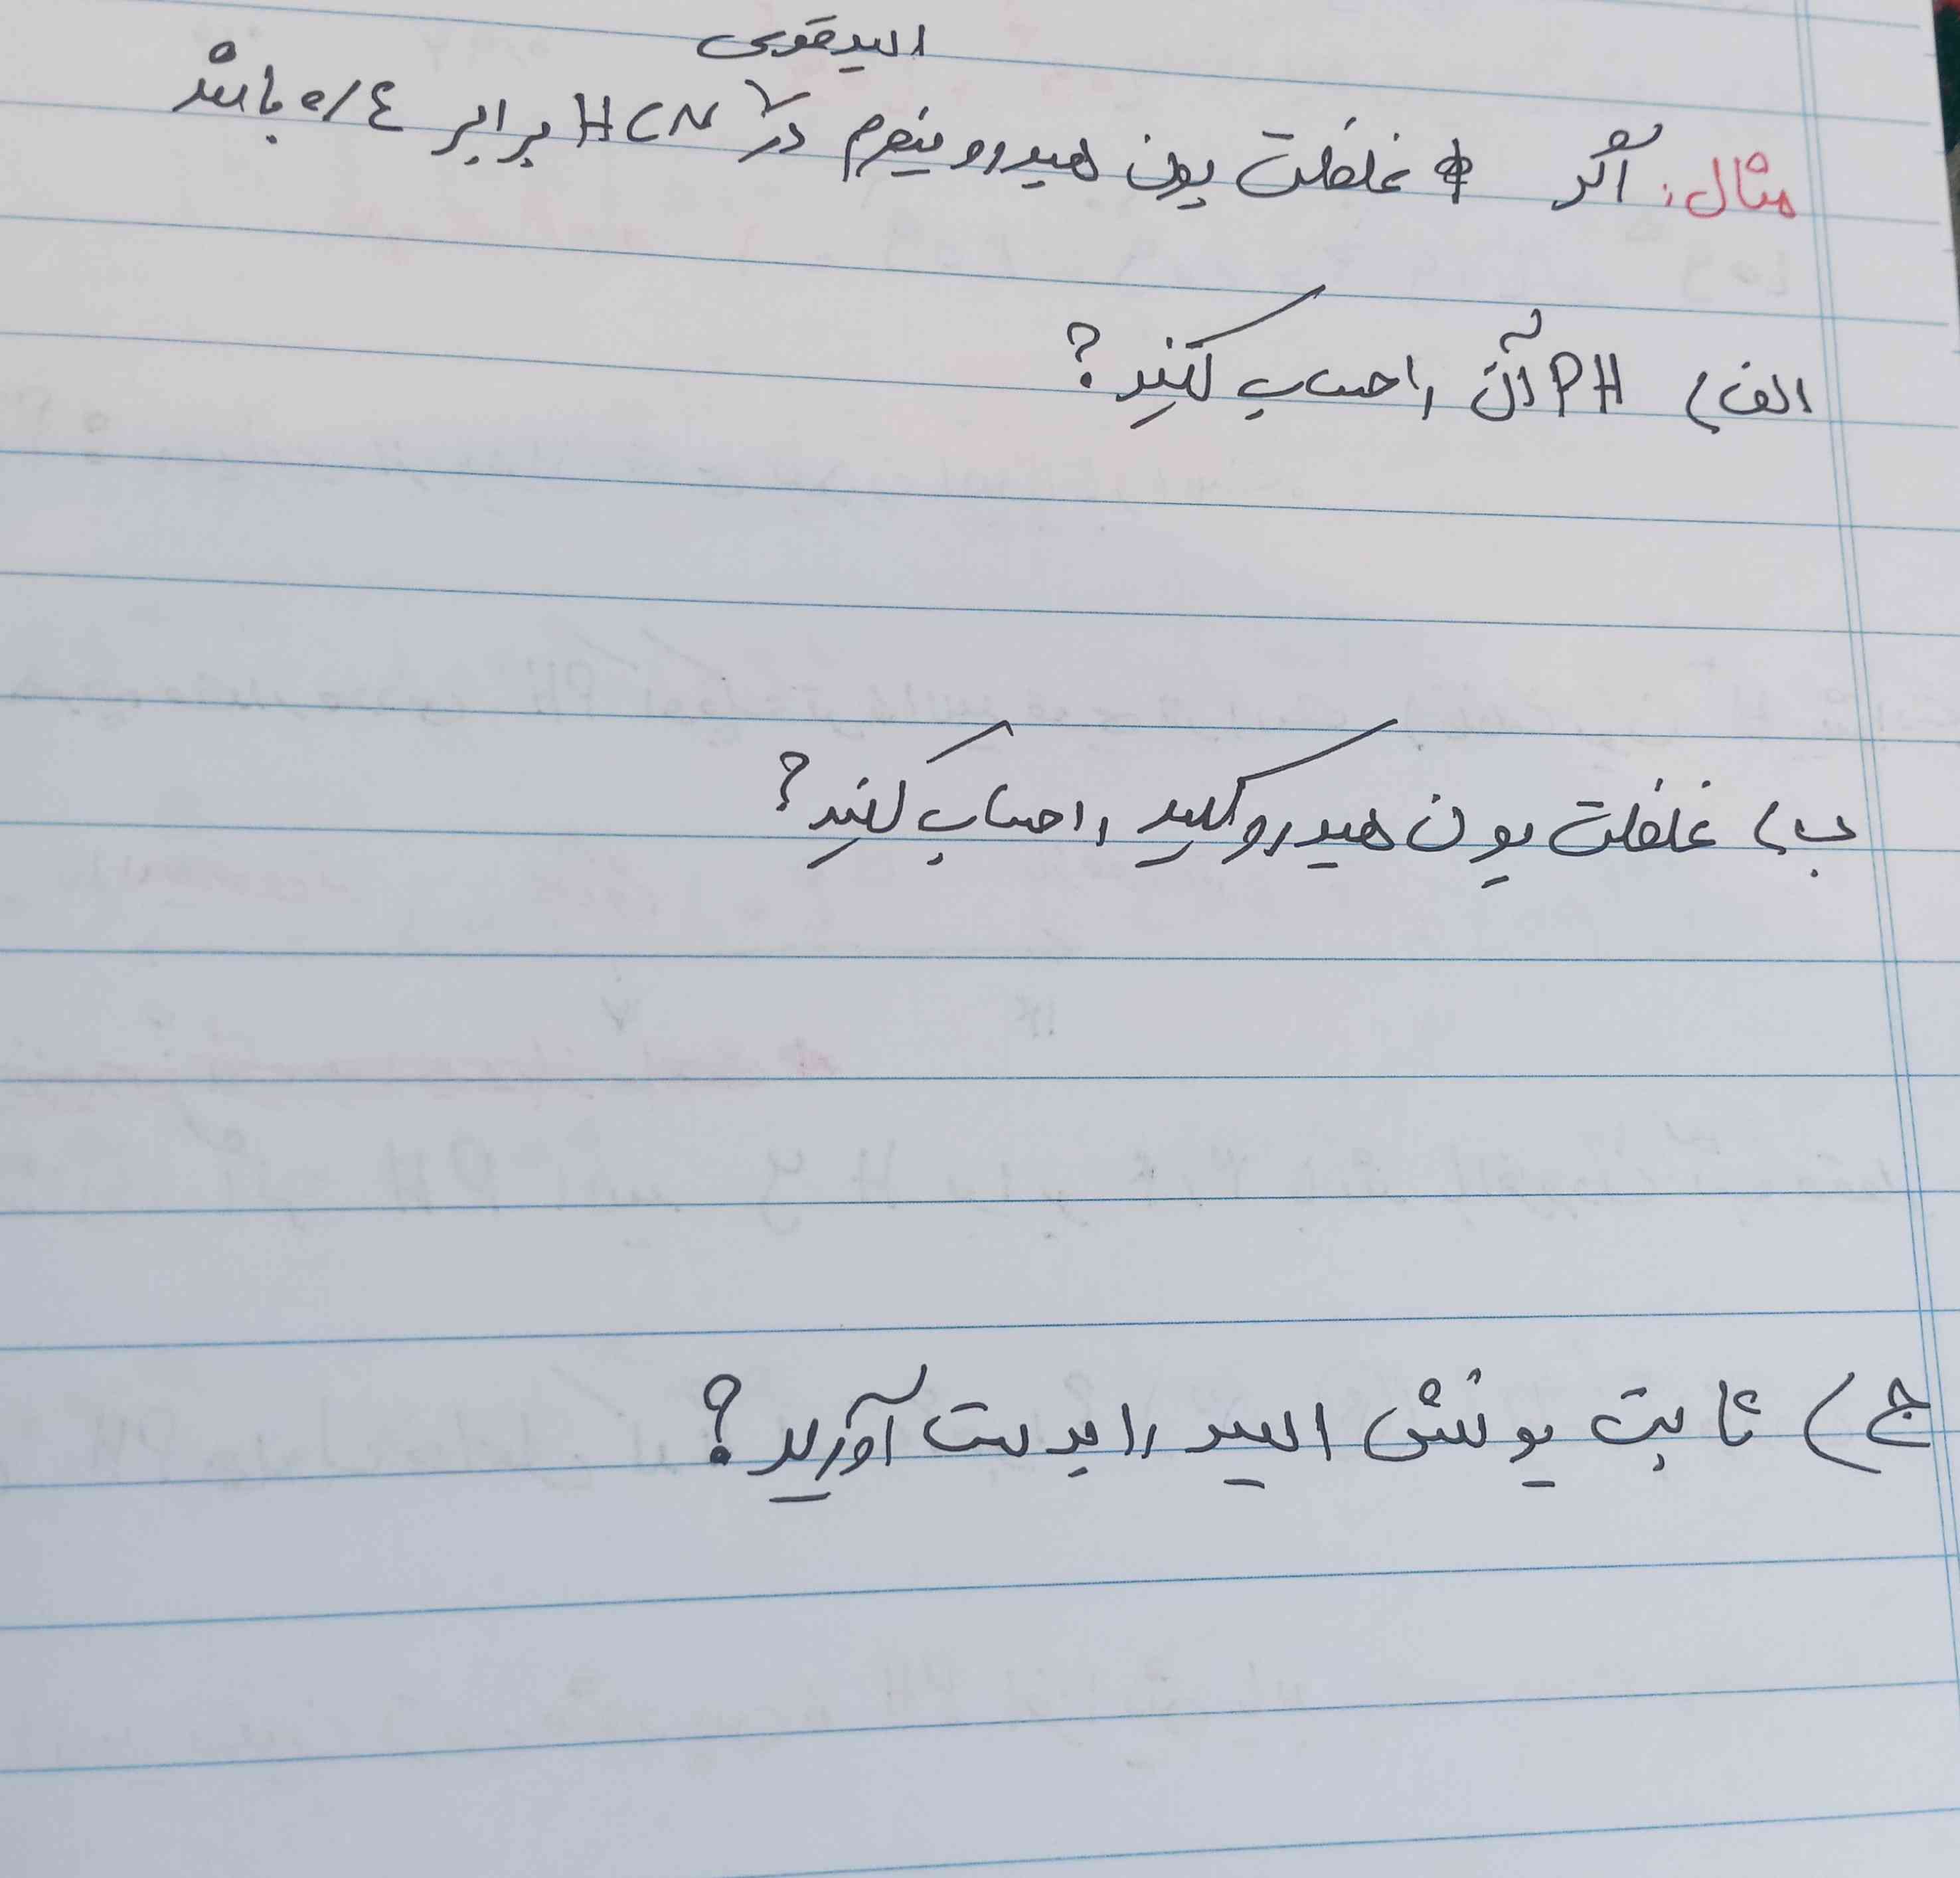 اسید قوی
مثال: اگر غلظت یون هیدرونیوم در HCN برابر ۰/۴ باشد
الف) PH آن را حساب کنید؟
ب) غلظت یون هیدروکسید را حساب کنید؟
ج) ثابت یونش اسید را بدست آورید؟